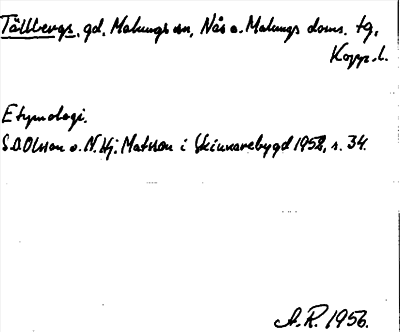 Tällbergs, gd, Malungs sn, Nås o. Malungs doms. tg,
Kopp. l.
Etymologi.
S.D. Olsson o. N. Hj. Matsson i Skinnarebygd 1952, s. 34.
A.R. 1956.